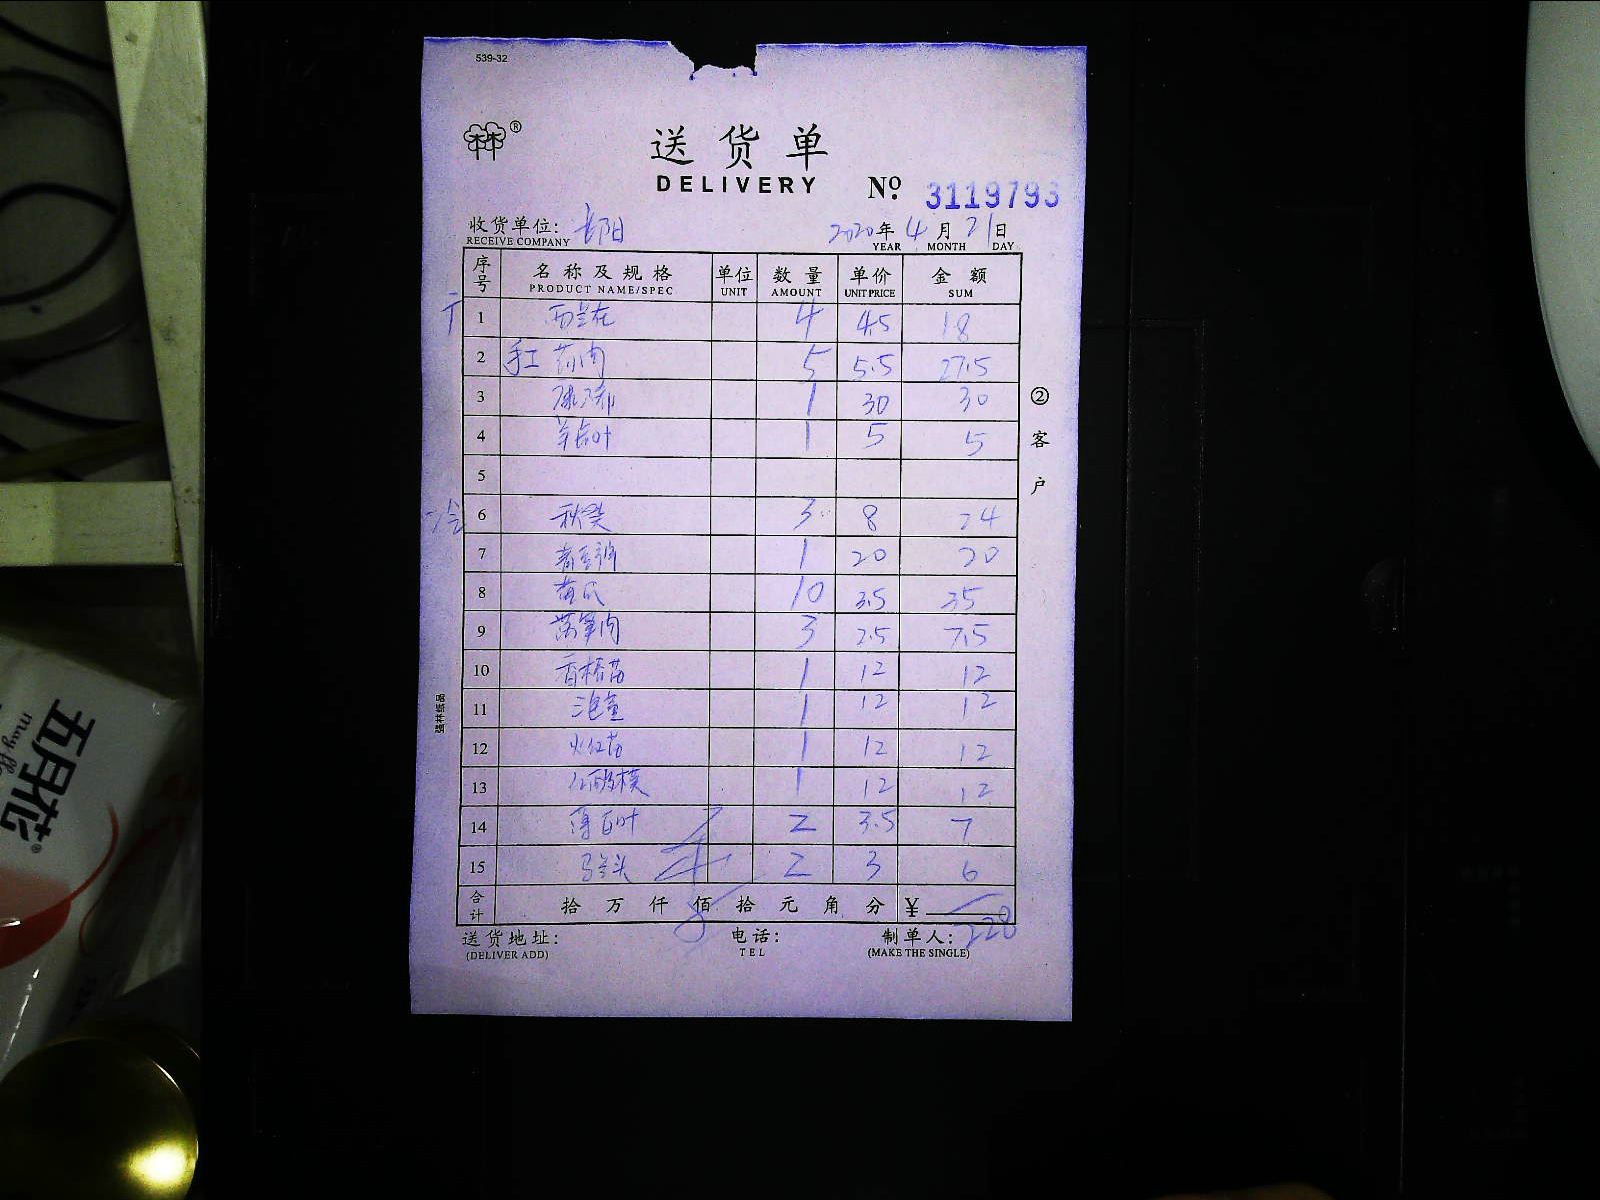 539-32
®
送货单
DELIVERY
No. 3119793
收货单位:
RECEIVE COMPANY
2020年 4月 21日
YEAR MONTH DAY
序号 名称及规格 单位 数量 单价 金额
PRODUCT NAME/SPEC UNIT AMOUNT UNIT PRICE SUM
1 西兰花 4 4.5 18
2 手工 5 5.5 27.5
3 1 30 30
4 1 5 5
5
6 秋葵 3 8 24
7 1 20 20
8 黄瓜 10 3.5 35
9 莴笋肉 3 2.5 7.5
10 香椿苗 1 12 12
11 1 12 12
12 火红苗 1 12 12
13 1 12 12
14 薄百叶 2 3.5 7
15 马兰头 2 3 6
合计 拾万仟佰拾元角分 ¥ 228
送货地址: 电话: 制单人:
(DELIVER ADD) TEL (MAKE THE SINGLE)
②客户
强林纸品
五月花®